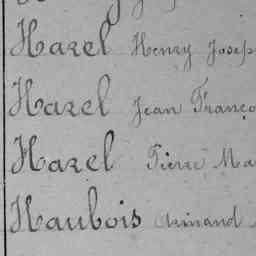 Hazel Henry Josep
Hazel Jean Franço
Hazel Pierre Ma
Haubois Armand